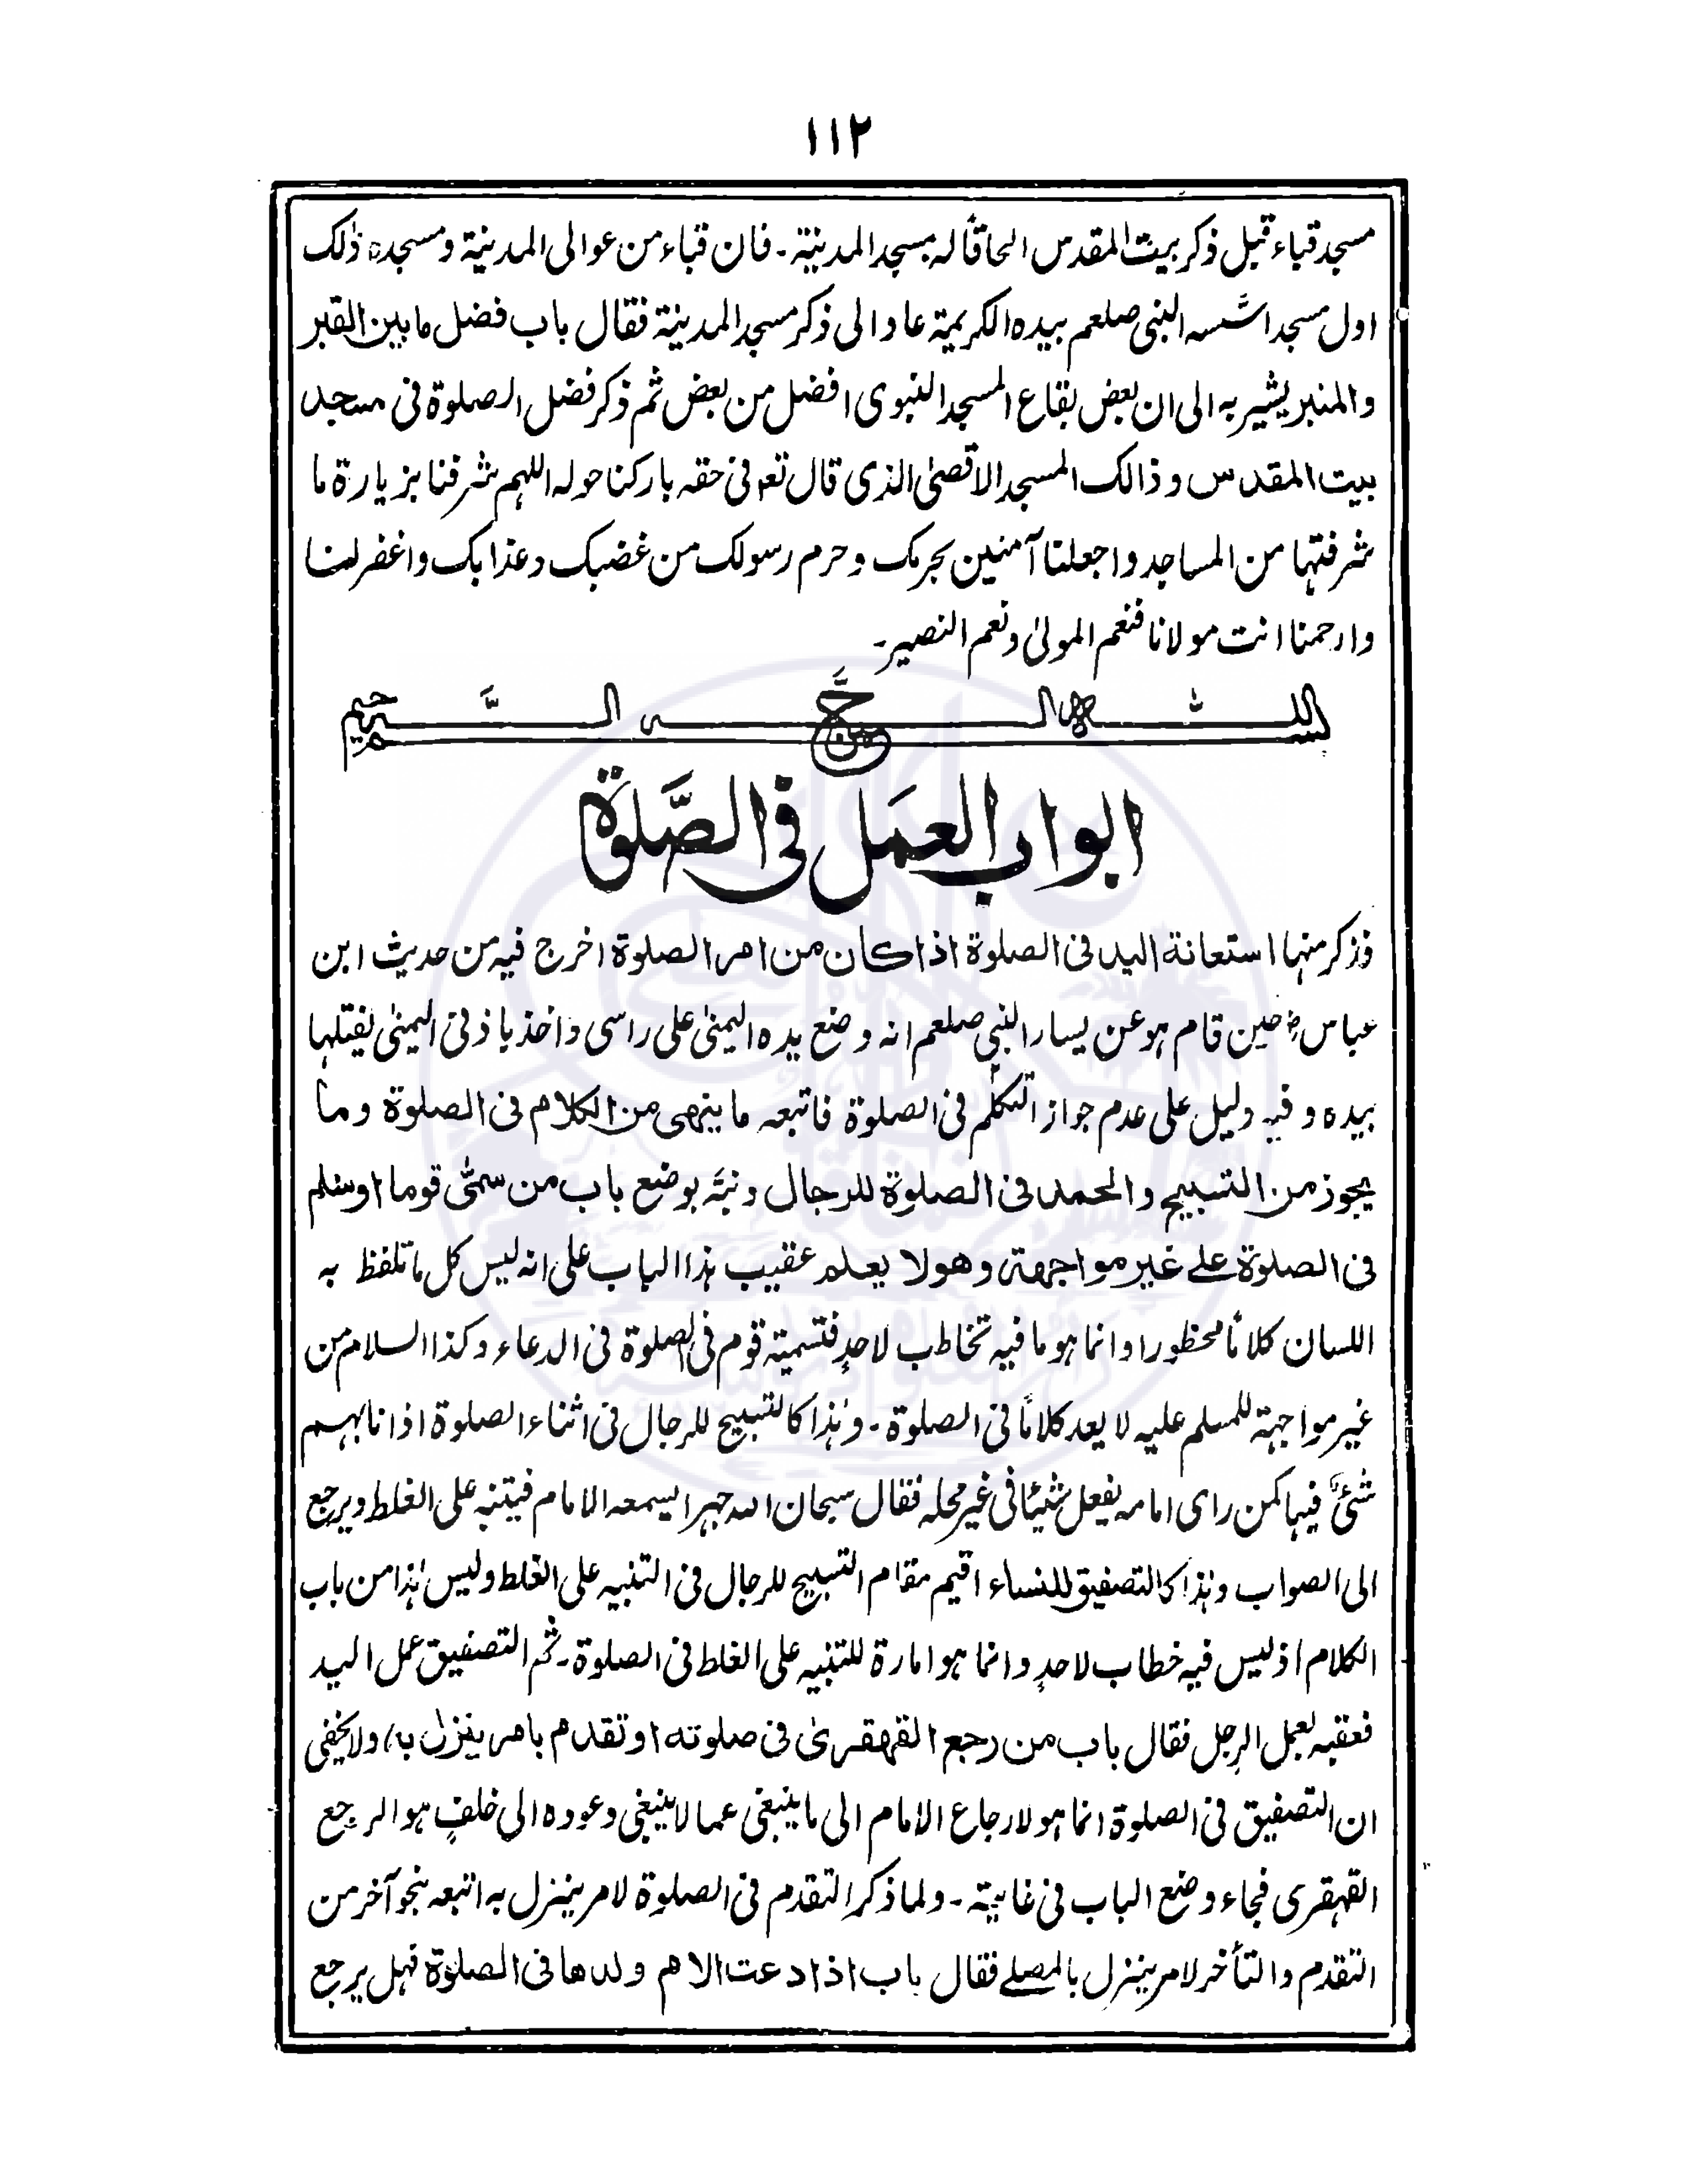 ١١٢
مسجد قباء قبل ذكر بيت المقدس الحاقًا له بمسجد المدينة ـ فان قباء من عوالى المدينة ومسجده ذٰلك
اول مسجد اسَّسه النبى صلعم بيده الكريمة عاد الى ذكر مسجد المدينة فقال باب فضل ما بين القبر
والمنبر يشير به الى ان بعض بقاع المسجد النبوى افضل من بعض ثم ذكر فضل الصلوة فى مسجد
بيت المقدس وذالك المسجد الاقصىٰ الذى قال تعو فى حقه باركنا حوله اللهم شرفنا بزيارة ما
شرفتها من المساجد واجعلنا آمنين بحرمك وحرم رسولك من غضبك وعذابك واغفر لنا
وارحمنا انت مولانا فنعم المولىٰ ونعم النصير ـ
بسم الله الرحمٰن الرَّحيم
ابواب العمَل فى الصَّلوة
فذكر منها استعانة اليد فى الصلوة اذا كان من امر الصلوة اخرج فيه من حديث ابن
عباس رض حين قام هو عن يسار النبى صلعم انه وضع يده اليمنىٰ على راسى واخذ باذنى اليمنىٰ يفتلها
بيده وفيه دليل على عدم جواز التكلم فى الصلوة فاتبعه ما ينهى من الكلام فى الصلوة وما
يجوز من التسبيح والحمد فى الصلوة للرجال ونبَّه بوضع باب من سمّٰى قوما اوسلم
فى الصلوة على غير مواجهة وهو لا يعلم عقيب هذا الباب على انه ليس كل ما تلفظ به
اللسان كلامًا محظورا وانما هو ما فيه تخاطب لاحدٍ فتسمية قوم فى الصلوة فى الدعاء وكذا السلام من
غير مواجهة للمسلم عليه لا يعد كلامًا فى الصلوة ـ وهٰذا كالتسبيح للرجال فى اثناء الصلوة اذا نابهم
شئٌ فيها كمن راى امامه يفعل شيئا فى غير محله فقال سبحان الله جهرا ليسمعه الامام فيتنبه على الغلط ويرجع
الى الصواب وهٰذا كالتصفيق للنساء اقيم مقام التسبيح للرجال فى التنبيه على الغلط وليس هٰذا من باب
الكلام اذ ليس فيه خطاب لاحدٍ وانما هو امارة للتنبيه على الغلط فى الصلوة ـ ثم التصفيق عمل اليد
فعقبه بعمل الرجل فقال باب من رجع القهقرىٰ فى صلوته اوتقدم بامر ينزل به) ولا يخفى
ان التصفيق فى الصلوة انما هو لارجاع الامام الى ما ينبغى عما لا ينبغى وعوده الى خلفٍ هو الرجع
القهقرى فجاء وضع الباب فى غايته ـ ولما ذكر التقدم فى الصلوة لامر ينزل به اتبعه بنحو آخر من
التقدم والتأخر لامر ينزل بالمصلى فقال باب اذا دعت الام ولدها فى الصلوة فهل يرجع